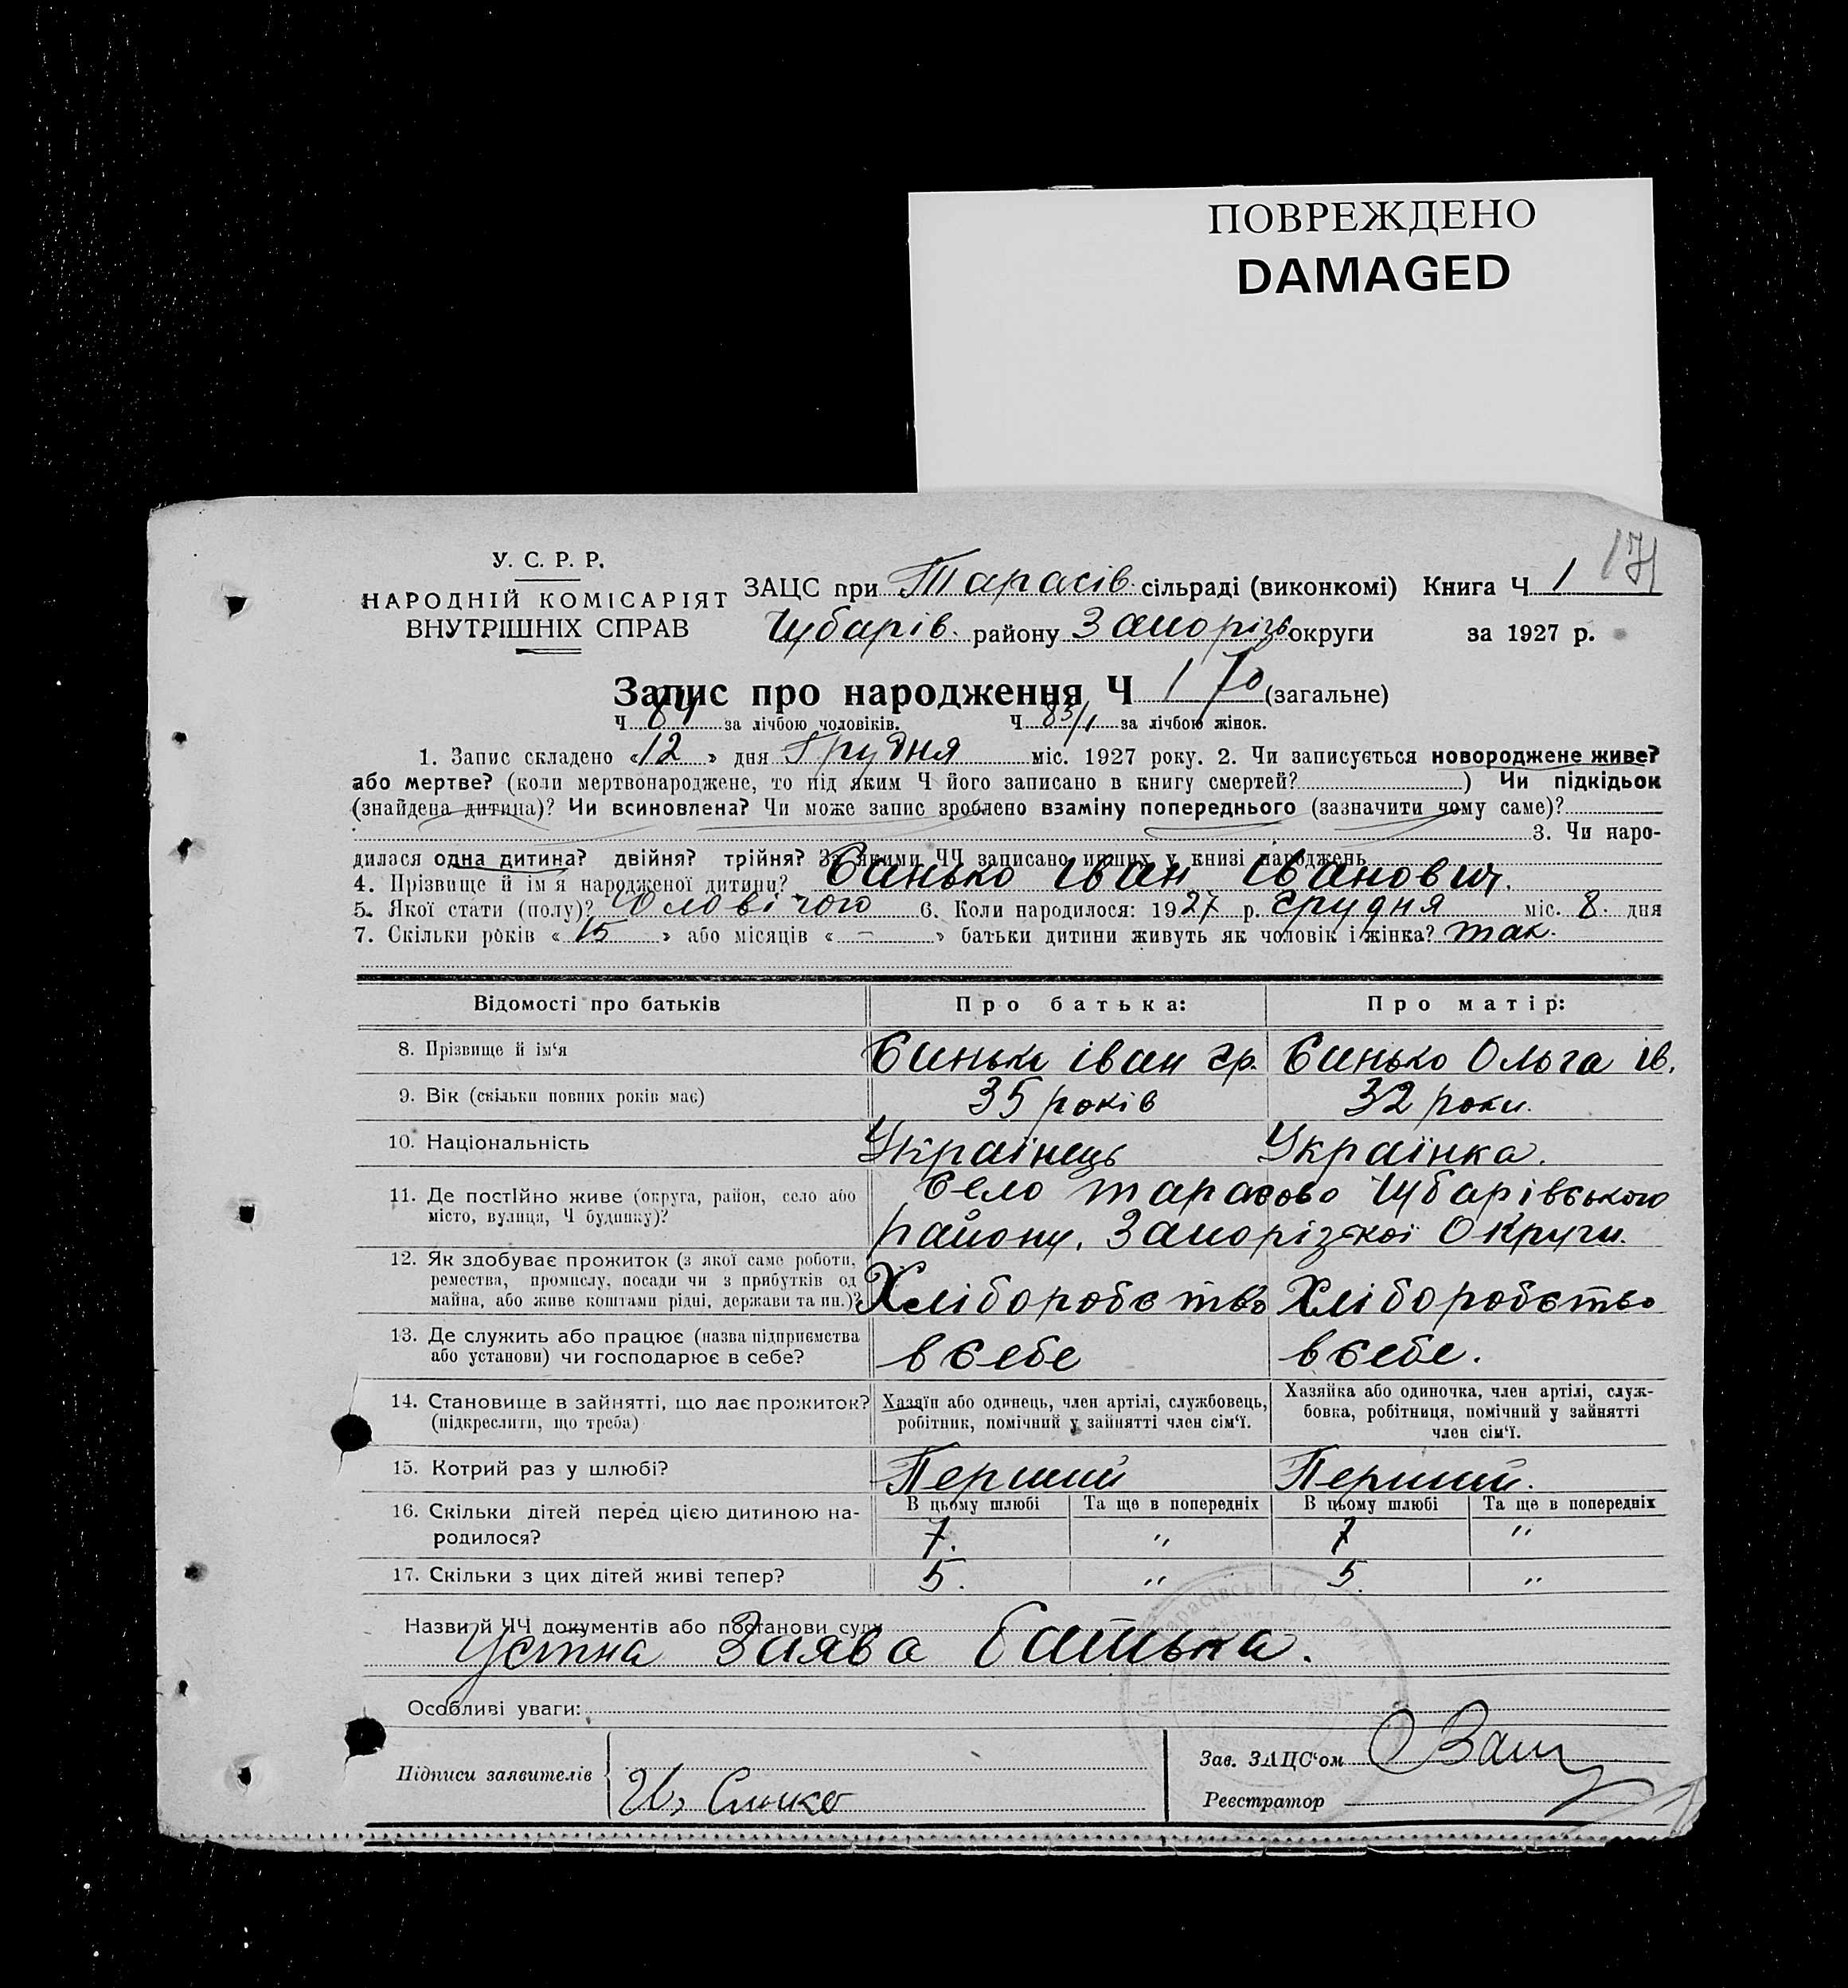 ПОВРЕЖДЕНО
DAMAGED
171
У. С. Р. Р.
НАРОДНІЙ КОМІСАРІЯТ
ВНУТРІШНІХ СПРАВ
ЗАЦС при Тарасів. сільраді (виконкомі) Книга Ч 1
Чубарів. району Запоріз округи за 1927 р.
Запис про народження Ч 170 (загальне)
Ч 87 за лічбою чоловіків. Ч 83/1 за лічбою жінок.
1. Запис складено «12» дня Грудня міс. 1927 року. 2. Чи записується новороджене живе?
або мертве? (коли мертвонароджене, то під яким Ч його записано в книгу смертей? ) Чи підкідьок
(знайдена дитина)? Чи всиновлена? Чи може запис зроблено взаміну попереднього (зазначити чому саме)?
3. Чи наро-
дилася одна дитина? двійня? трійня? За якими ЧЧ записано инших у книзі народжень
4. Прізвище й ім'я народженої дитини? Синько Іван Іванович.
5. Якої стати (полу)? Чоловічого 6. Коли народилося: 1927 р. Грудня міс. 8. дня
7. Скільки років «15» або місяців «–» батьки дитини живуть як чоловік і жінка? так.
Відомості про батьків Про батька: Про матір:
8. Прізвище й ім'я Синько Іван Гр. Синько Ольга Ів.
9. Вік (скільки повних років має) 35 років 32 роки.
10. Національність Українець Українка.
11. Де постійно живе (округа, район, село або
місто, вулиця, Ч будинку)?
Село Тарасово Чубарівського
району. Запорізскої Округи.
12. Як здобуває прожиток (з якої саме роботи,
ремества, промислу, посади чи з прибутків од
майна, або живе коштами рідні, держави та ин.)?
Хліборобство Хліборобство
13. Де служить або працює (назва підприємства
або установи) чи господарює в себе?
в себе в себе.
14. Становище в зайнятті, що дає прожиток?
(підкреслити, що треба)
Хазяїн або одинець, член артілі, службовець,
робітник, помічний у зайнятті член сім'ї.
Хазяйка або одиночка, член артілі, служ-
бовка, робітниця, помічний у зайнятті
член сім'ї.
15. Котрий раз у шлюбі? Перший Перший.
16. Скільки дітей перед цією дитиною на-
родилося?
В цьому шлюбі Та ще в попередніх В цьому шлюбі Та ще в попередніх
7. " 7 "
17. Скільки з цих дітей живі тепер? 5. " 5. "
Назви й ЧЧ документів або постанови суду
Устна Заява батька.
Особливі уваги:
Підписи заявителів
И. Синко
Зав. ЗАЦС'ом
Реєстратор